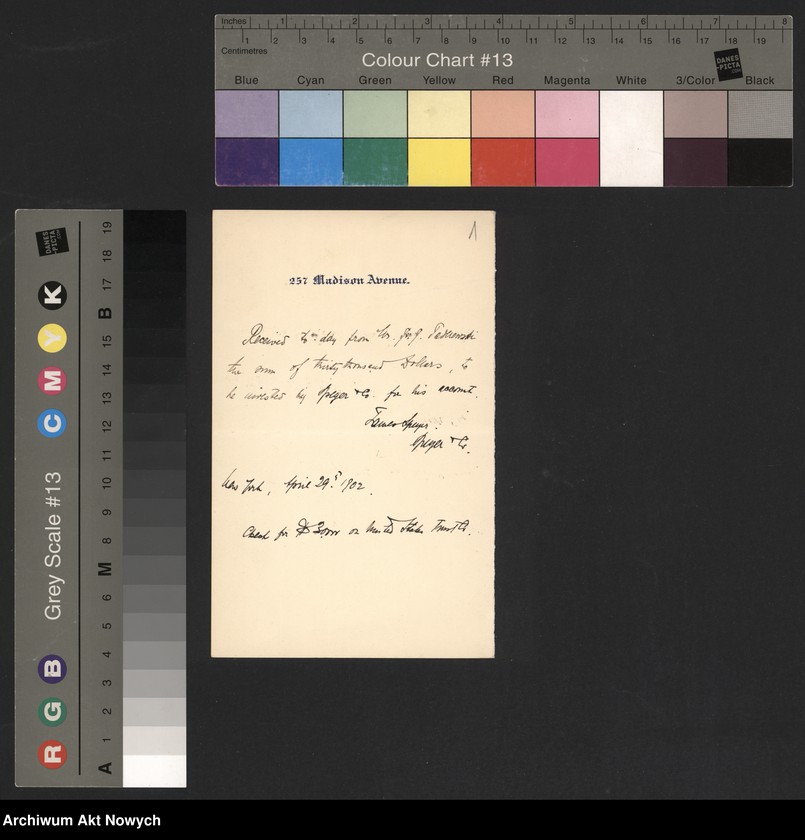 Inches 1 2 3 4 5 6 7 8
Centimetres 1 2 3 4 5 6 7 8 9 10 11 12 13 14 15 16 17 18 19
Colour Chart #13
DANES
-PICTA
.COM
Blue Cyan Green Yellow Red Magenta White 3/Color Black
Grey Scale #13
R G B C M Y K
DANES
-PICTA
.COM
A 1 2 3 4 5 6 M 8 9 10 11 12 13 14 15 B 17 18 19
1
257 Madison Avenue.
Received this day from Mr. Paderewski
the sum of thirty thousand Dollars, to
be invested by Speyer & Co. for his account.
James Speyer.
Speyer & Co.
New York, April 29th 1902.
Check for $ 30,000 on United States Trust Co.
Archiwum Akt Nowych